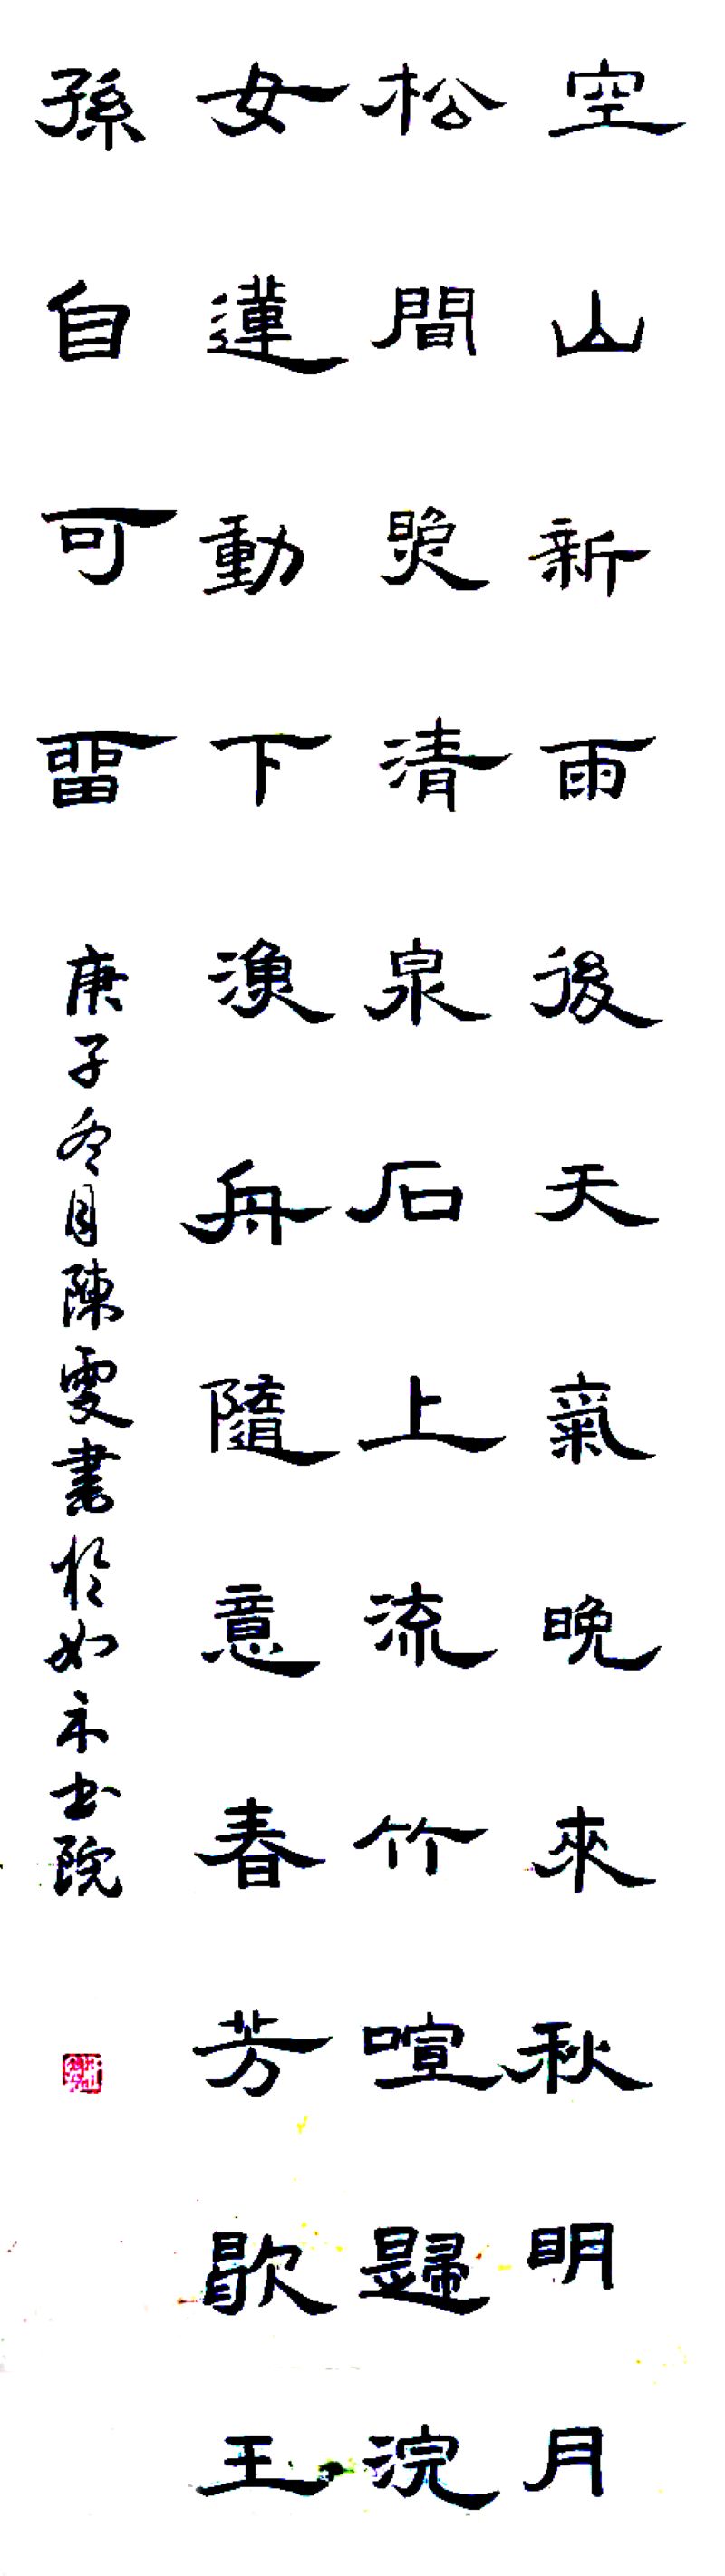 空山新雨後天氣晚來秋明月
松間照清泉石上流竹喧歸浣
女蓮動下漁舟隨意春芳歇王
孫自可留
庚子冬月陳雯書於如木書院